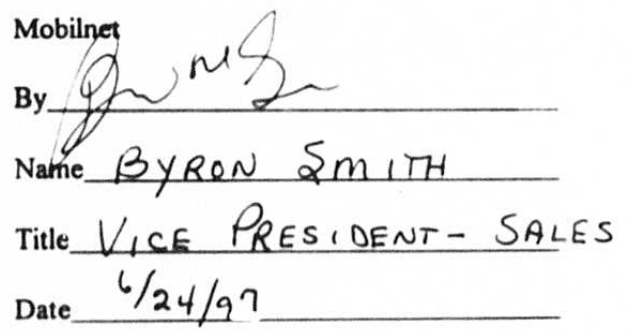 Mobilnet
By
Name BYRON SMITH
Title VICE PRESIDENT - SALES
Date 6/24/97